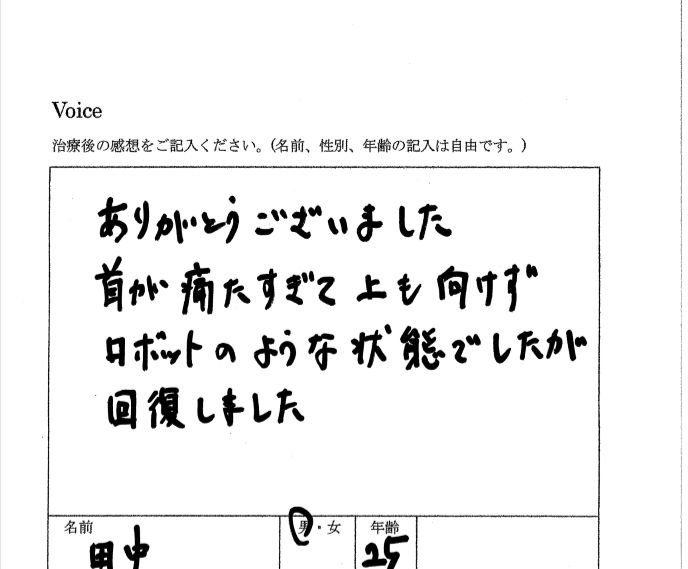 Voice
治療後の感想をご記入ください。(名前、性別、年齢の記入は自由です。)
ありがとうございました
首が痛たすぎて上も向けず
ロボットのような状態でしたが
回復しました
名前 男・女 年齢
田中 25